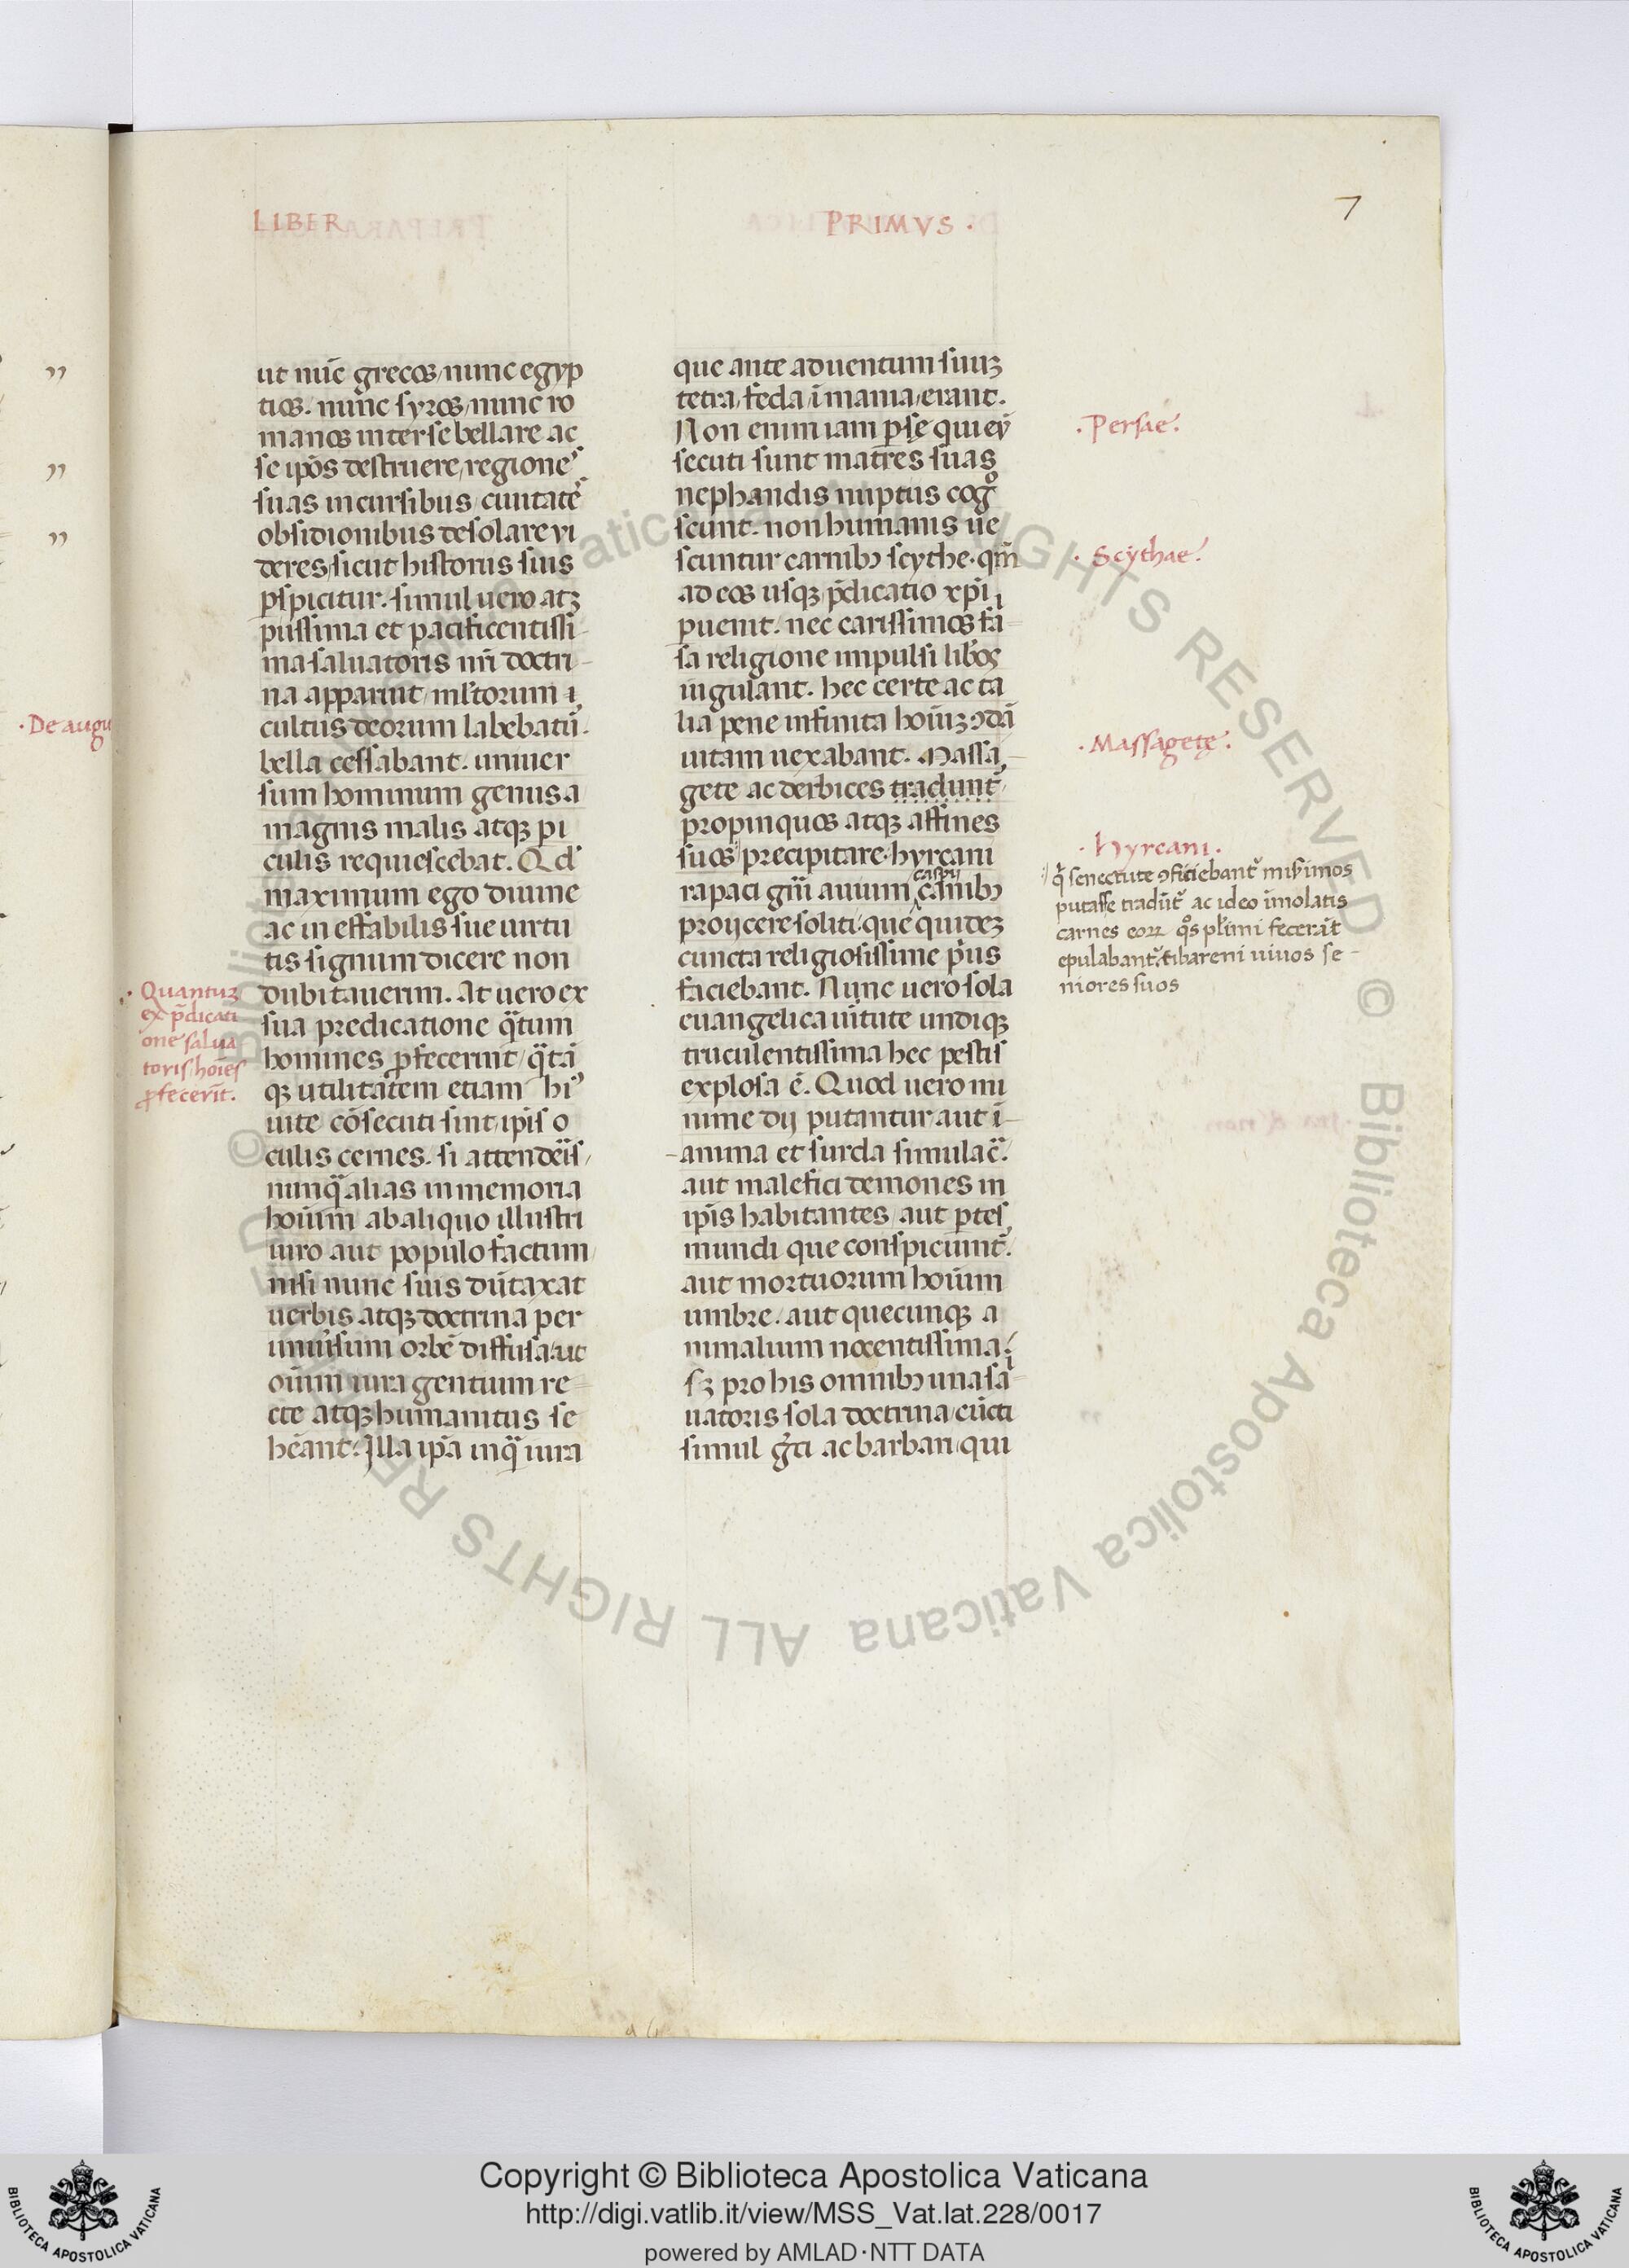 LIBER PRIMVS .
7
ut nūc grecos/nunc egyp
tios. nunc syros/nunc ro
manos inter se bellare ac
se ipōs destruere/regiones
suas incursibus/ciuitates
obsidionibus desolare vi
deres/sicut historiis suis
ꝑspicitur. simul uero atqꝫ
piissima et pacificentissi-
ma saluatoris nr̄i doctri-
na apparuit/
cultus deorum labebatur̄.
bella cessabant. uniuer
sum hominum genus a
magnis malis atqꝫ pi
culis requiescebat. Qd'
maximum ego diuine
ac in effabilis sue uirtu
tis signum dicere non
dubitauerim. At uero ex
sua predicatione q̃tum
homines ꝓfecerint/q̃tā
qꝫ utilitatem etiam hi'
uite cōsecuti sint/ip̄is o
culis cernes. si attenderis/
nunq̃ alias in memoria
hoīum ab aliquo illustri
uiro aut populo factum
nisi nunc suis dūtaxat
uerbis atqꝫ doctrina per
uniu̾sum orbē diffusa. ut
oīum iura gentium re-
cte atqꝫ humanitus se
hēant. Illa ip̄a inq̃ iura
que ante aduentum suuꝫ
tetra/feda/īmania/erant.
Non enim iam ꝑsę qui ei'
secuti sunt matres suas
nephandis nuptiis cogͦ
scunt. non humanis ue
scuntur carnibꝫ scythe. qm̄
ad eos usqꝫ p̄dicatio xp̄i
ꝑuenit. nec carissimos fa-
sa religione impulsi lib̾os
iugulant. hec certe ac ta
lia pene infinita hoīuꝫ ꝯdā
uitam uexabant. Massa-
gete ac derbices tradunt̄
propinquos atqꝫ affines
suos precipitare. hyrcani
rapaci gn̄i auium, caspii canibꝫ
proiicere soliti. que quideꝫ
cuncta religiosissime p̾us
faciebant. Nunc uero sola
euangelica uirtute undiqꝫ
truculentissima hec pestis
explosa ē. Quod uero mi
nime dij putantur aut ī-
-anima et surda simulac̃.
aut malefici demones in
ip̄is habitantes/aut ꝑtes
mundi que conspiciunt̄.
aut mortuorum hoīum
umbre. aut quecunqꝫ a
nimalium nocentissima.
sꝫ pro his omnibꝫ una sa-
uatoris sola doctrina/cūcti
simul g̾ci ac barbari/qui
· Quantuꝫ
ex p̄dicati
one salua
toris hoīes
ꝓfecerīt.
· Persae.
· Scythae.
· Massagetę.
· hyrcani.
q̾ senectute ꝯficiebant̾ mis̾imos
putasse tradūt̾ ac ideo īmolatis
carnes eoꝝ q̾s pl̾imi fecerīt
epulabant̾. tibareni uiuos se-
niores suos
· De augu
Copyright © Biblioteca Apostolica Vaticana
http://digi.vatlib.it/view/MSS_Vat.lat.228/0017
powered by AMLAD·NTT DATA
BIBLIOTECA APOSTOLICA VATICANA
BIBLIOTECA APOSTOLICA VATICANA
© Biblioteca Apostolica Vaticana ALL RIGHTS RESERVED © Biblioteca Apostolica Vaticana ALL RIGHTS RESERVED